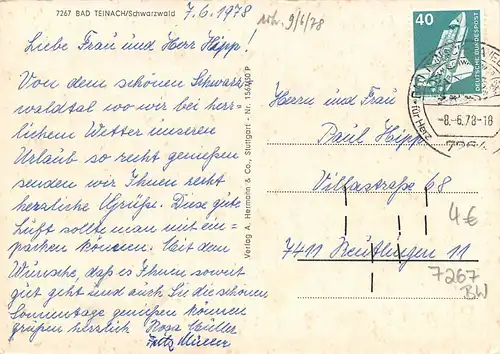 7267 BAD TEINACH/Schwarzwald
7.6.1978
9/6/78
Liebe Frau und Herr Hipp!
Von dem schönen Schwarz-
waldtal wo wir bei herr-
lichem Wetter unseren
Urlaub so recht genießen
senden wir Ihnen recht
herzliche Grüße. Diese gute
Luft sollte man mit ein-
packen können. Mit dem
Wunsche, daß es Ihnen soweit
gut geht und auch Sie die schönen
Sonnentage genießen können
grüßen herzlich Rosa Müller
Fritz Müller
Verlag A. Hermann & Co., Stuttgart - Nr. 156/40 P
40
DEUTSCHE BUNDESPOST
-8.-6.78-18
Herrn und Frau
Paul Hipp
Villastraße 68
7411 Reutlingen 11
4€
7267
BW